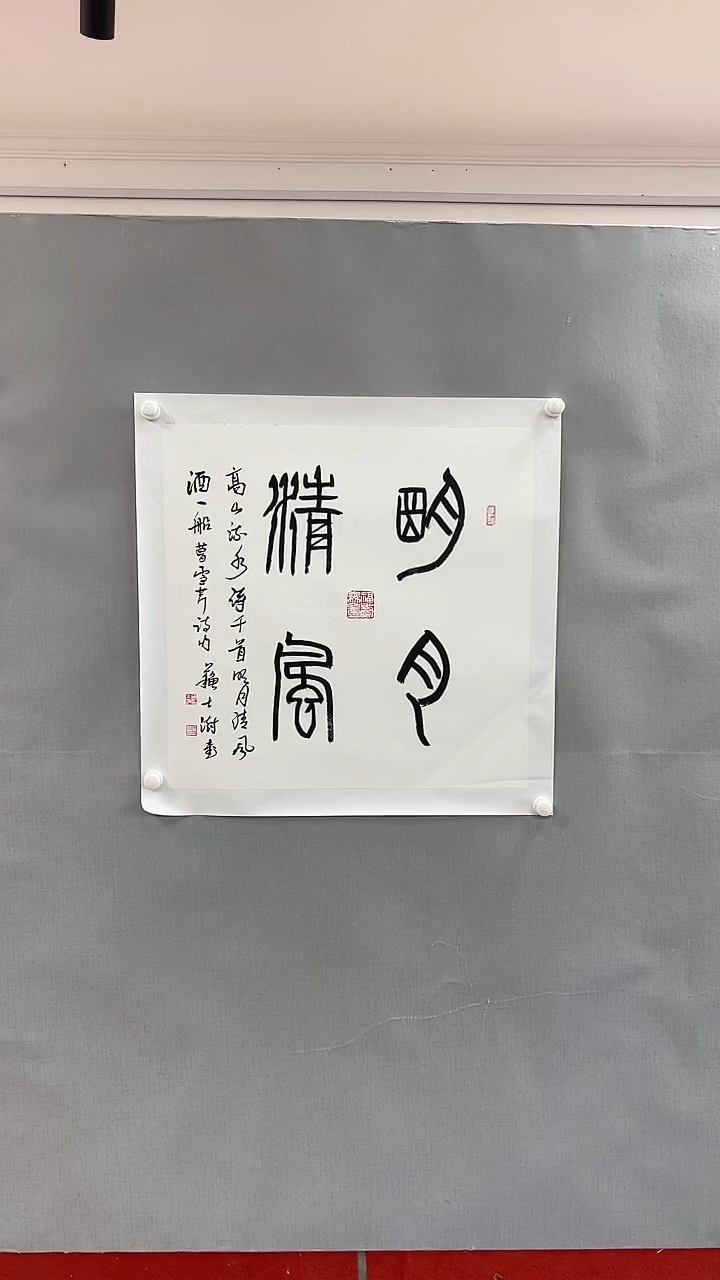 明月
清風
高山流水詩千首明月清風
酒一船 曹雪芹詩句 蘇士澍書